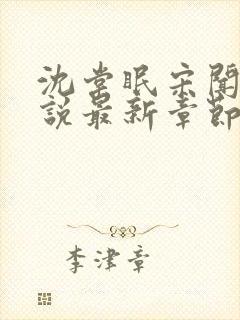 沈棠眠宋闻
說最新章節
李津章